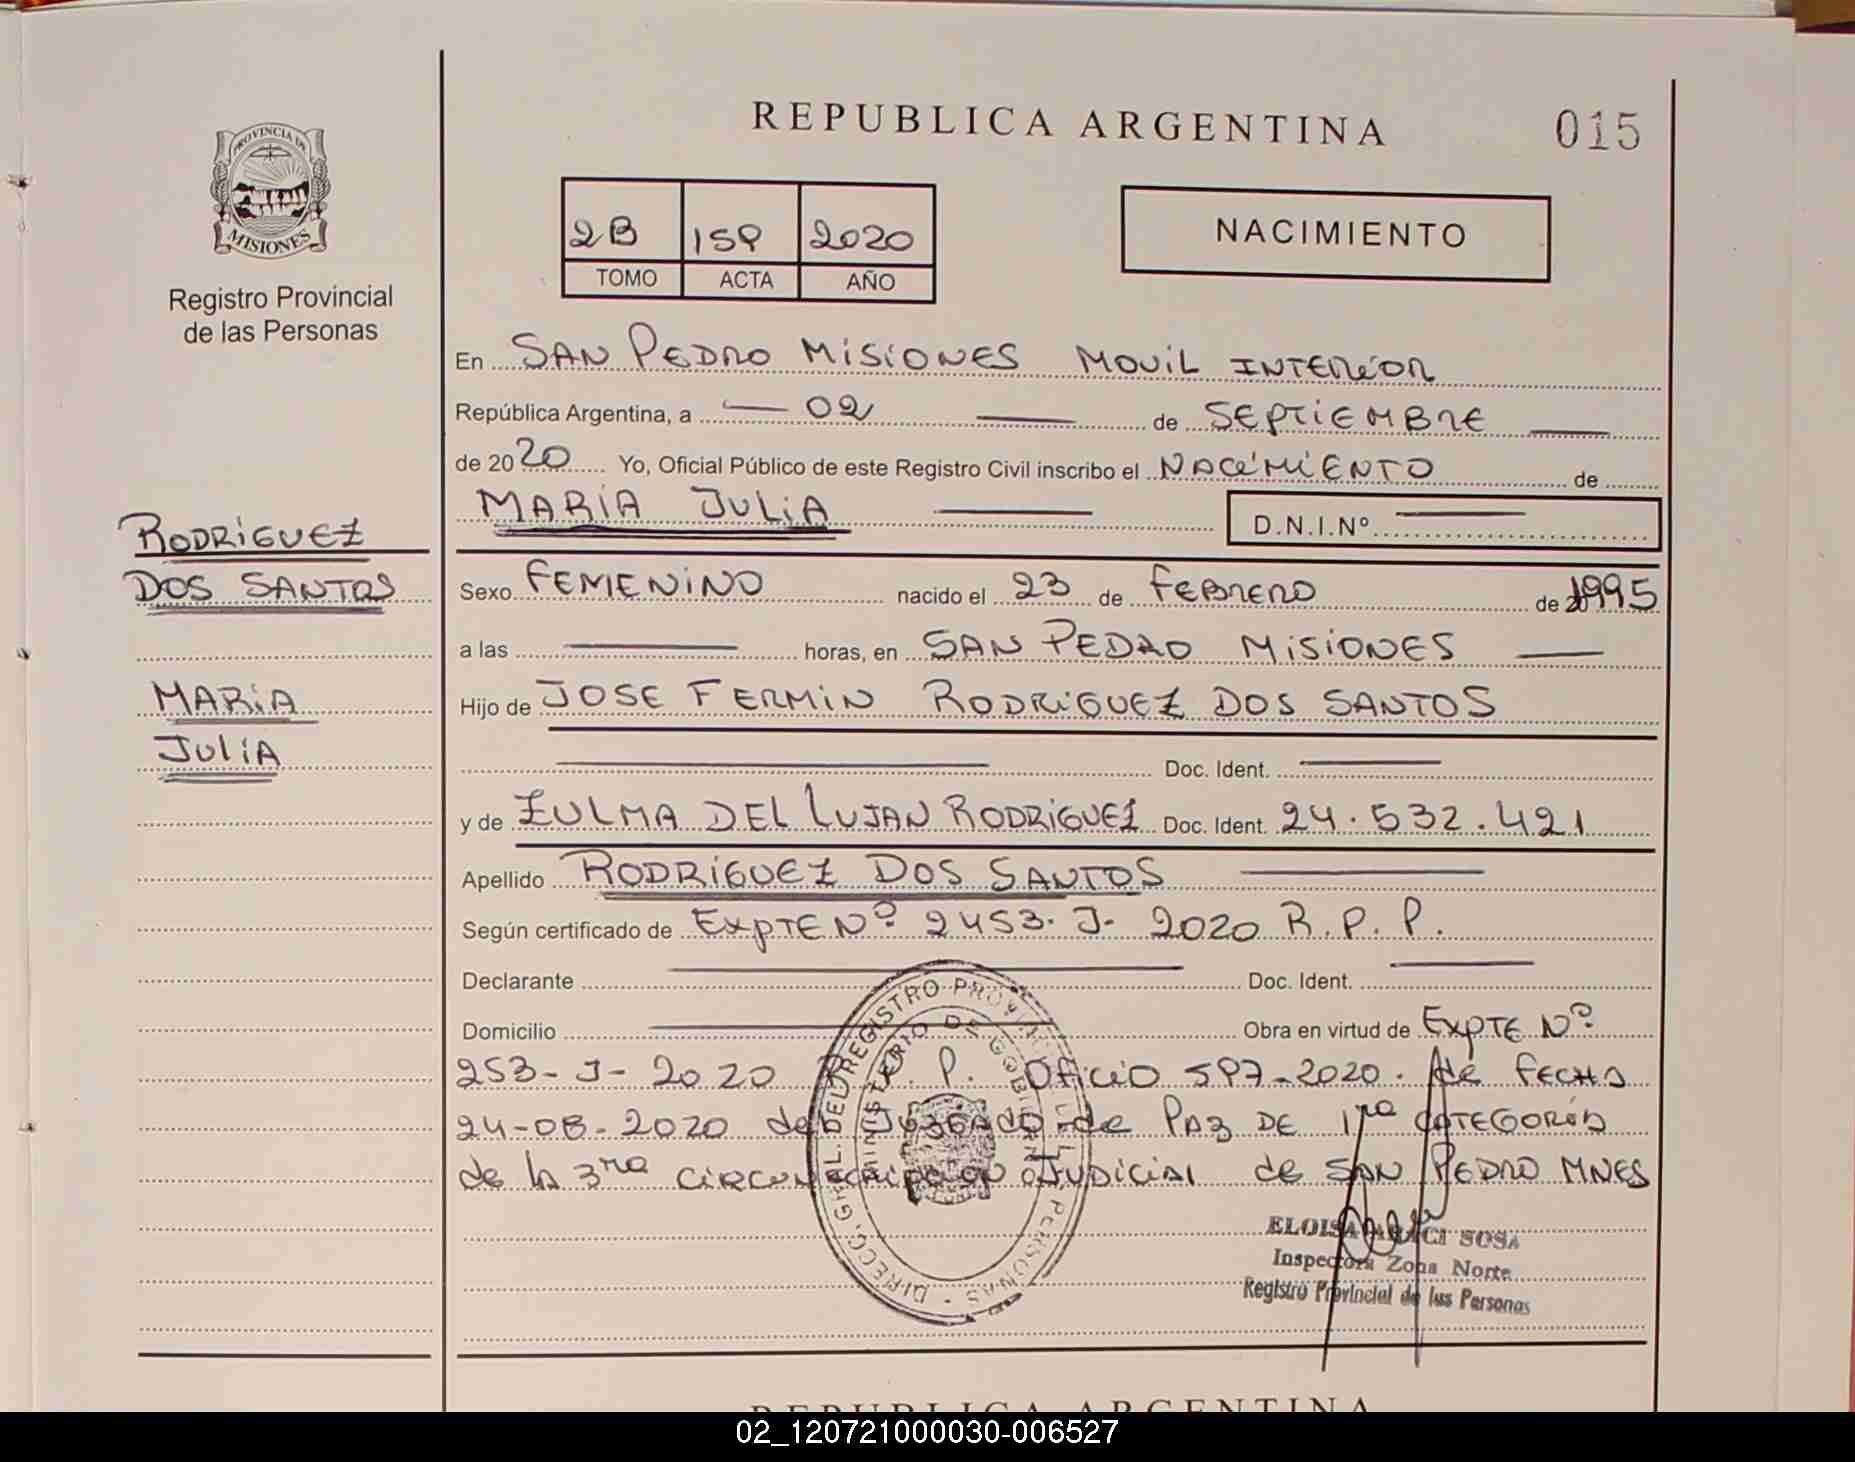 REPUBLICA ARGENTINA
015
PROVINCIA DE
MISIONES
Registro Provincial
de las Personas
2B 159 2020
TOMO ACTA AÑO
NACIMIENTO
En SAN PEDRO MISIONES MOVIL INTERIOR
República Argentina, a — 02 — de SEPTIEMBRE —
de 2020 Yo, Oficial Público de este Registro Civil inscribo el NACIMIENTO de
MARIA JULIA — D.N.I.Nº —
RODRIGUEZ
DOS SANTOS
MARIA
JULIA
Sexo FEMENINO nacido el 23 de FEBRERO de 1995
a las — horas, en SAN PEDRO MISIONES —
Hijo de JOSE FERMIN RODRIGUEZ DOS SANTOS
— Doc. Ident. —
y de ZULMA DEL LUJAN RODRIGUEZ Doc. Ident. 24.532.421
Apellido RODRIGUEZ DOS SANTOS —
Según certificado de EXPTE Nº 2453-J-2020 R.P.P.
Declarante — Doc. Ident. —
Domicilio — Obra en virtud de EXPTE Nº
253-J-2020 R.P.P. OFICIO 597-2020. de FECHA
24-08-2020 del JUZGADO de PAZ DE 1ra CATEGORIA
de la 3ra CIRCUNSCRIPCION JUDICIAL de SAN PEDRO MNES
DIRECC. GRAL. DEL REGISTRO PROVINCIAL DE LAS PERSONAS
MINISTERIO DE GOBIERNO
ELOISA ARACI SOSA
Inspectora Zona Norte
Registro Provincial de las Personas
REPUBLICA ARGENTINA
02_120721000030-006527